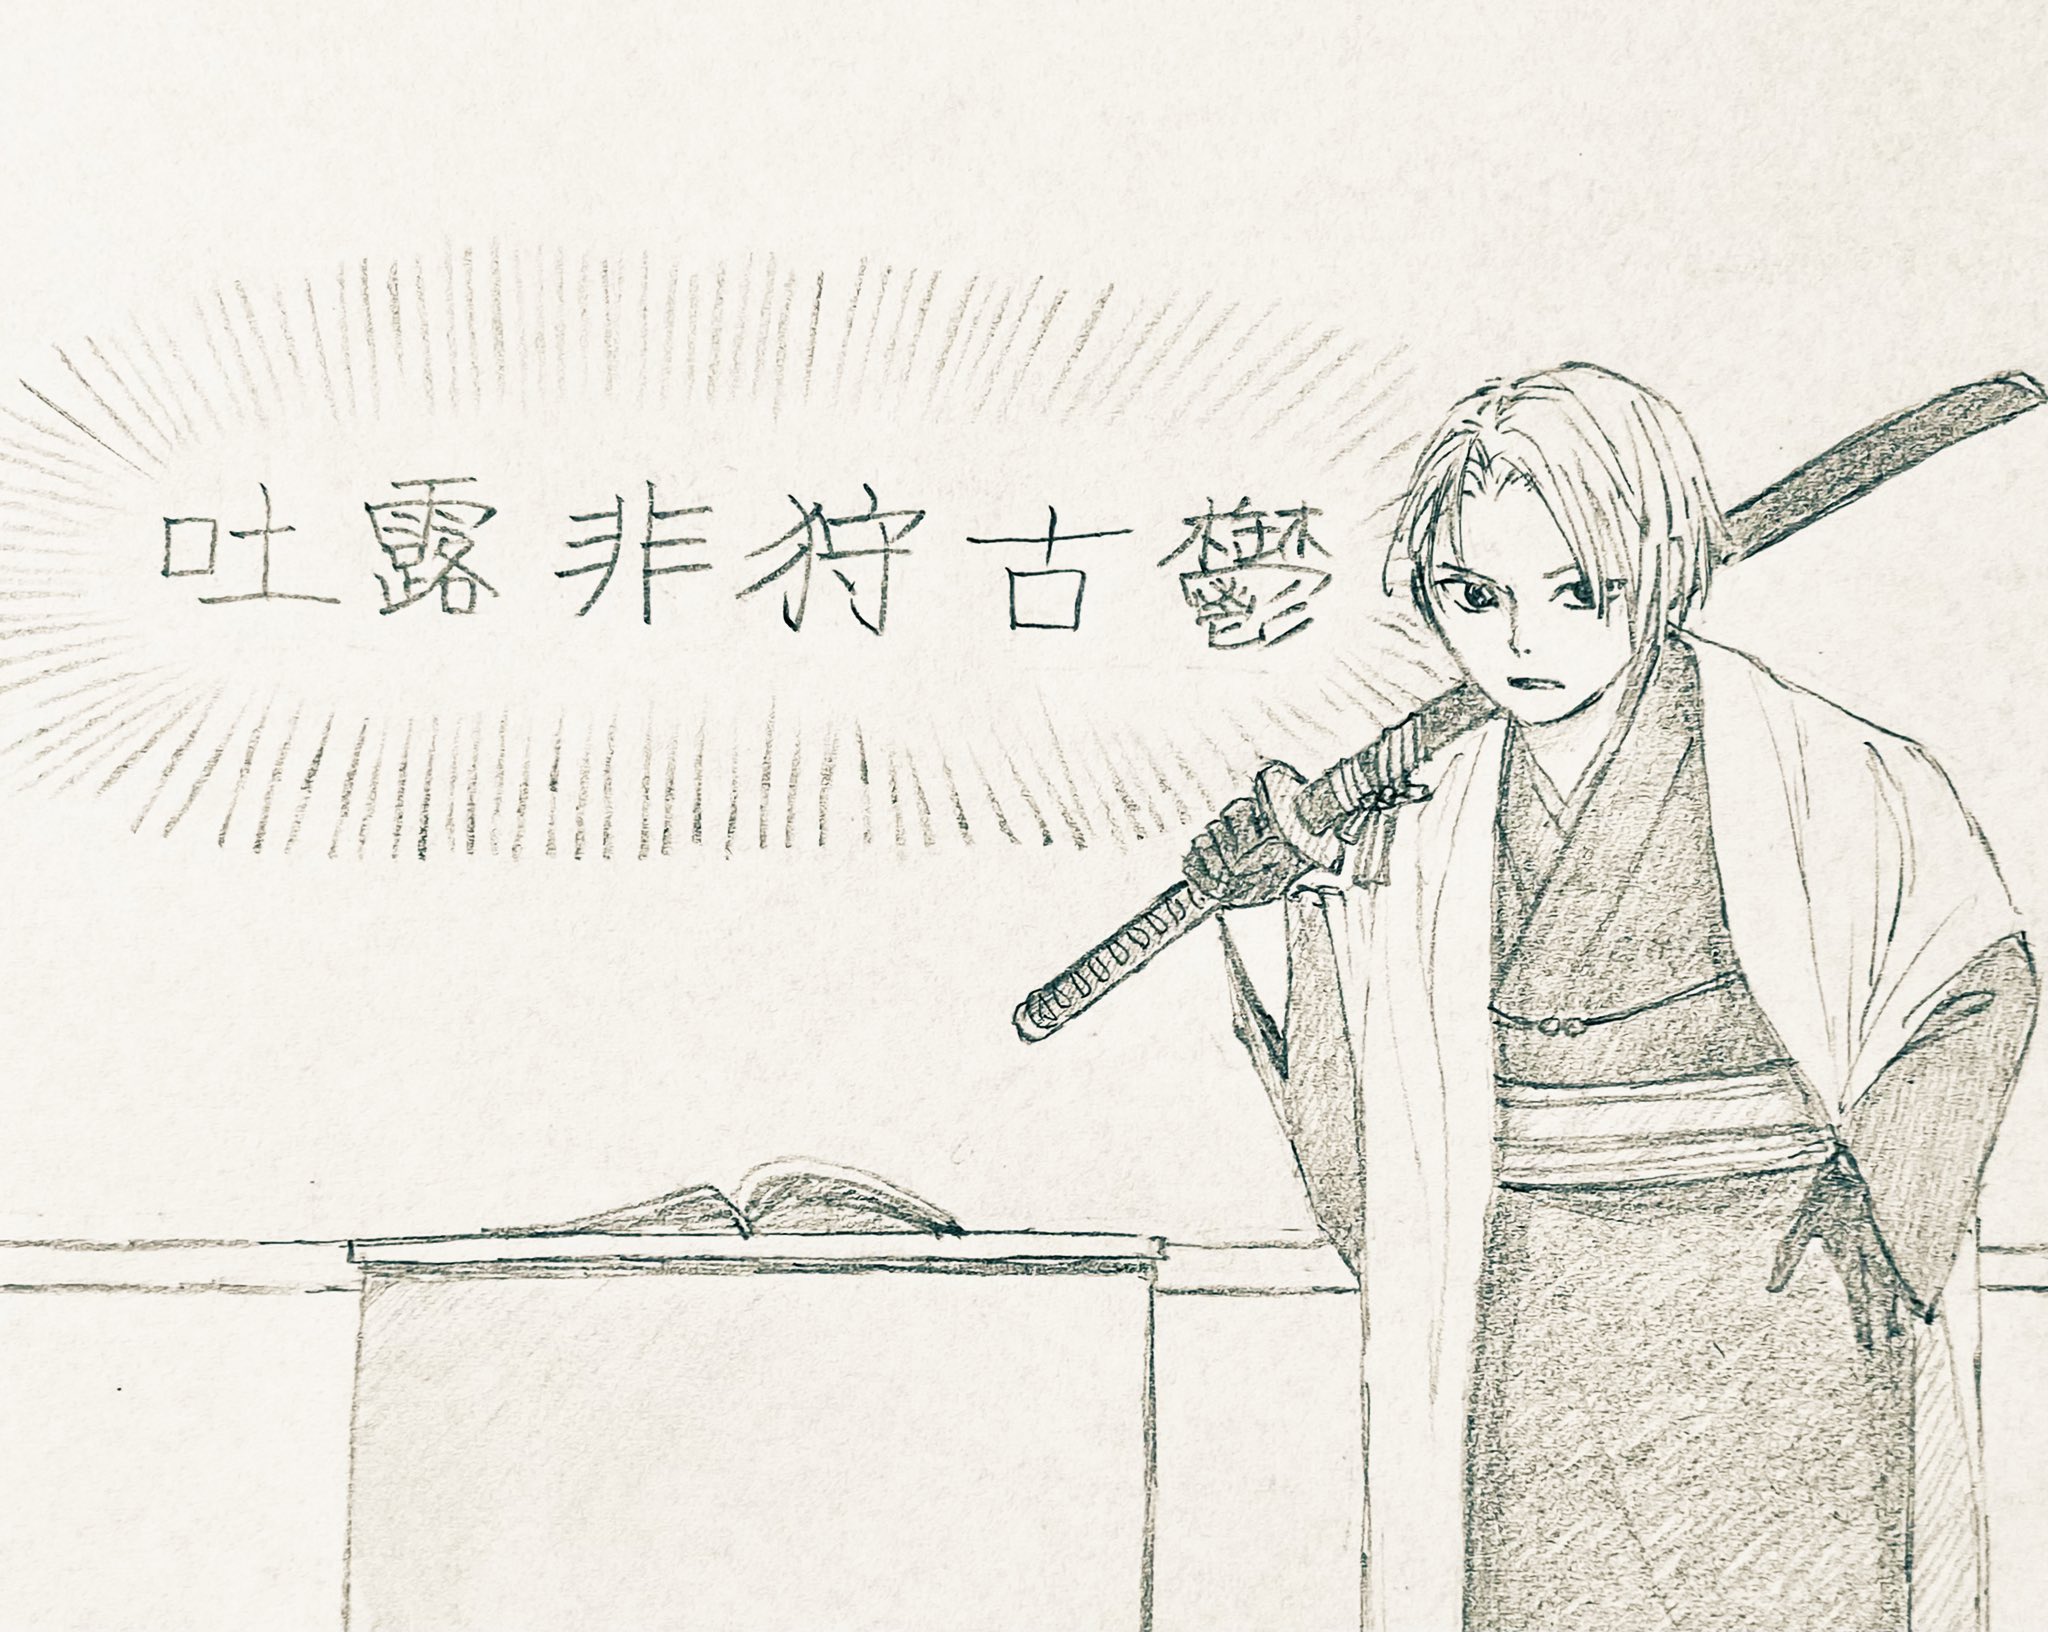 吐露非狩古鬱